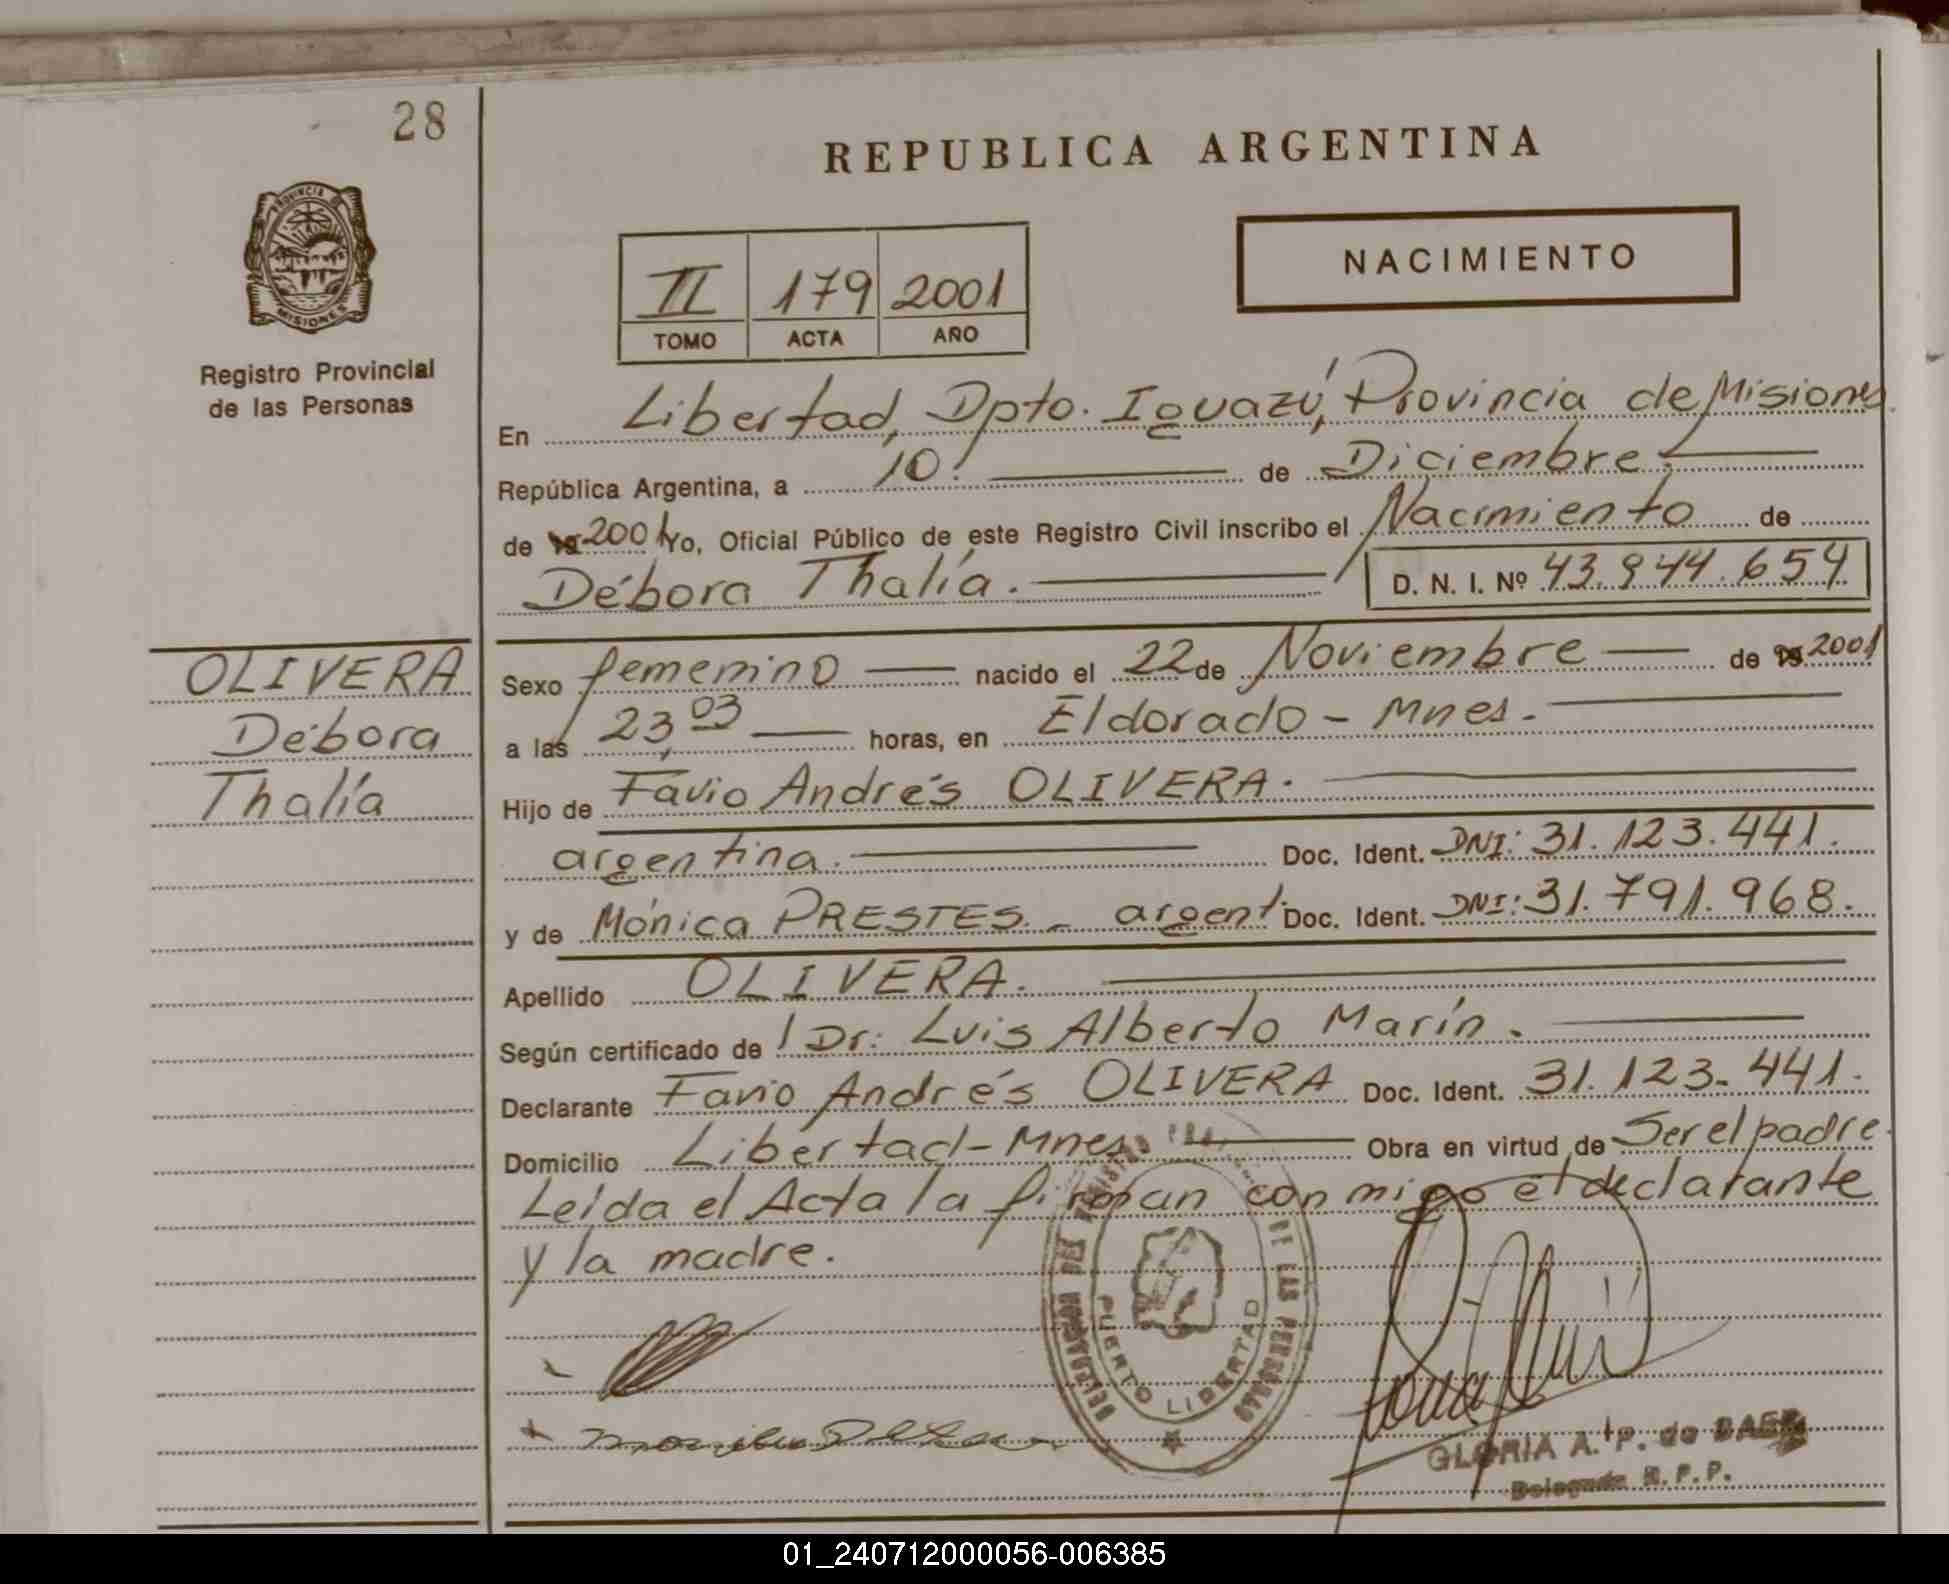 28
PROVINCIA DE
MISIONES
Registro Provincial
de las Personas
OLIVERA
Débora
Thalía
REPUBLICA ARGENTINA
II 179 2001
TOMO ACTA AÑO
NACIMIENTO
En Libertad, Dpto. Iguazú, Provincia de Misiones.
República Argentina, a 10. de Diciembre.
de 19 2001 Yo, Oficial Público de este Registro Civil inscribo el Nacimiento de
Débora Thalía. D. N. I. Nº 43.944.654
Sexo femenino nacido el 22 de Noviembre de 19 2001
a las 23,03 horas, en Eldorado - Mnes.
Hijo de Favio Andrés OLIVERA.
argentina. Doc. Ident. DNI: 31.123.441.
y de Mónica PRESTES. - argent. Doc. Ident. DNI: 31.791.968.
Apellido OLIVERA.
Según certificado de l Dr: Luis Alberto Marín.
Declarante Favio Andrés OLIVERA Doc. Ident. 31.123.441.
Domicilio Libertad - Mnes. Obra en virtud de Ser el padre.
Leída el Acta la firman con migo el declarante
y la madre.
DE LAS PERSONAS
PUERTO LIBERTAD
GLORIA A. P. de BAEZ
Delegada R. P. P.
01_240712000056-006385